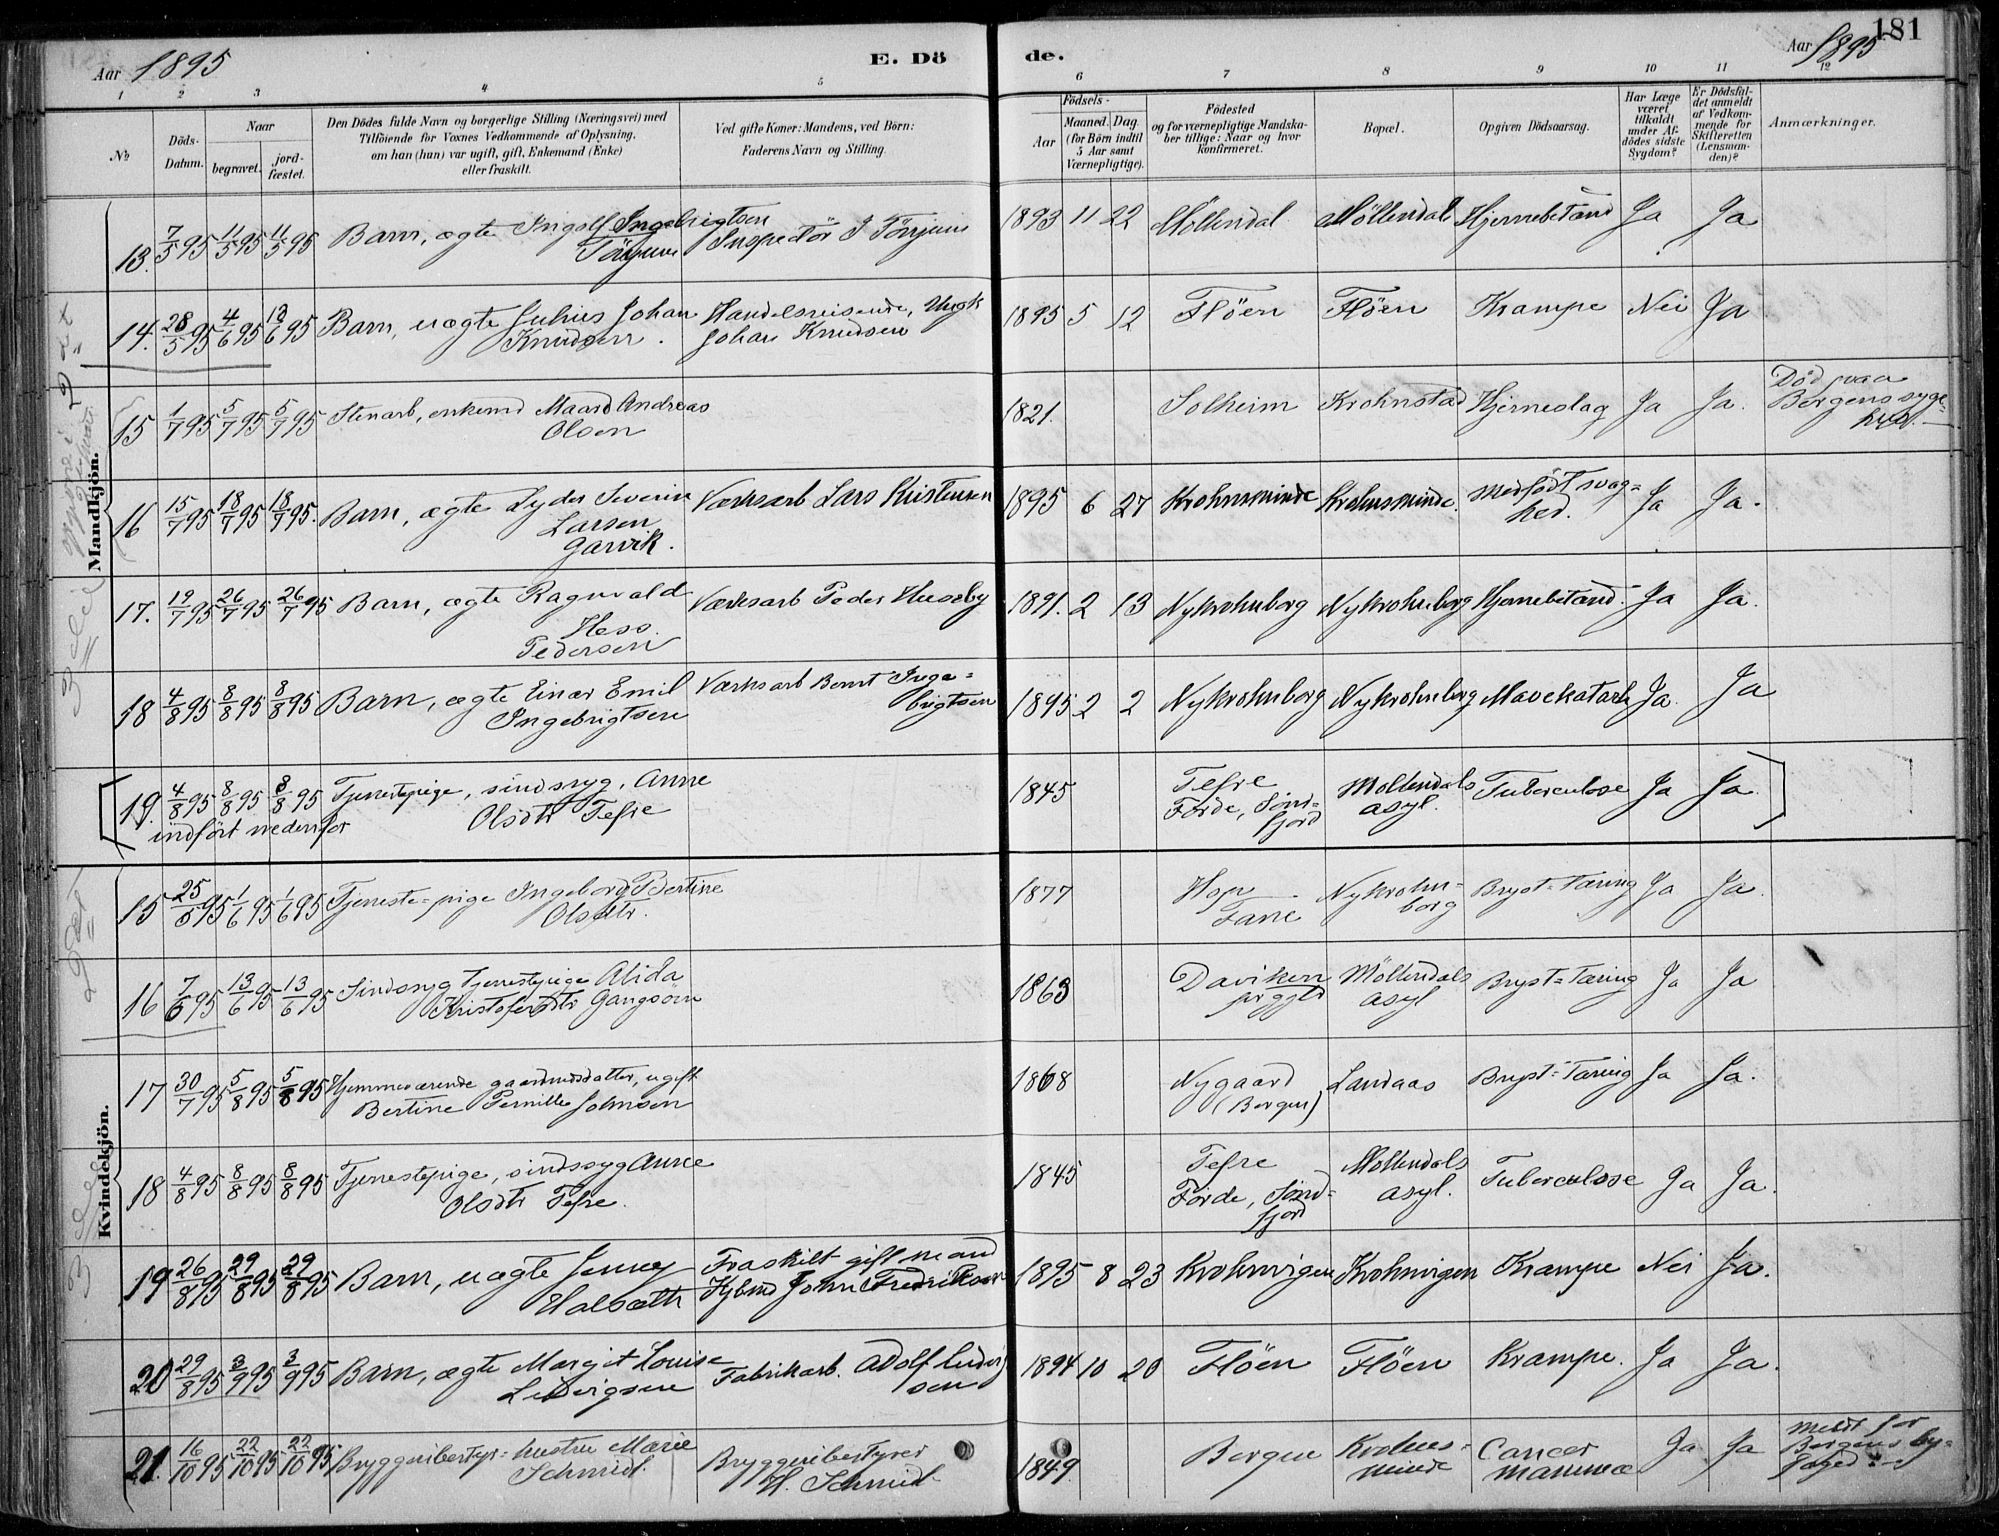 181
Aar 1895
E. Dö
de.
Aar 1895
1 2 3 4 5 6 7 8 9 10 11 12
No
Döds-
Datum.
Naar
begravet.
jord-
fæstet.
Den Dödes fulde Navn og borgerlige Stilling (Næringsvei) med
Tilföiende for Voxnes Vedkommende af Oplysning,
om han (hun) var ugift, gift, Enkemand (Enke)
eller fraskilt.
Ved gifte Koner: Mandens, ved Börn:
Faderens Navn og Stilling.
Födsels-
Aar
Maaned. Dag
(for Börn indtil
5 Aar samt
Værnepligtige).
Födested
og for værnepligtige Mandska-
ber tillige: Naar og hvor
konfirmeret.
Bopæl.
Opgiven Dödsaarsag.
Har Læge
været
tilkaldt
under Af-
dödes sidste
Sygdom?
Er Dödsfal-
det anmeldt
af Vedkom-
mende for
Skifteretten
(Lensman-
den)?
Anmærkninger.
Mandkjön.
13. 7/5 95 11/5 95 11/5 95 Barn, ægte Ingolf Ingebrigtsen
Törjum Inspektör I Törjum 1893 11 22 Möllendal Möllendal Hjernebetænd Ja Ja
14. 28/5 95 4/6 95 12/6 95 Barn, uægte Julius Johan
Knudsen. Handelsreisende, Ungk
Johan Knudsen 1895 5 12 Flöen Flöen Krampe Nei Ja
15 1/7 95 5/7 95 5/7 95 Stenarb, enkemd Maard Andreas
Olsen 1821. Solheim Krohnstad Hjerneslag Ja Ja. Död paa
Bergens syge-
hus.
16 15/7 95 18/7 95 18/7 95. Barn, ægte Lyder Severin
Larsen
Garvik. Værksarb Lars Kristensen 1895 6 27 Krohnsminde Krohnsminde. Medfödt svag-
hed. Ja Ja.
17. 19/7 95 26/7 95 26/7 95 Barn, ægte Ragnvald
Hess.
Pedersen Værksarb Peder Huseby 1891. 2 13 Nykrohnborg Nykrohnborg Hjernebetænd. Ja Ja.
18 4/8 95 8/8 95 8/8 95 Barn, ægte Einar Emil
Ingebrigtsen Værksarb Bernt Inge-
brigtsen 1895 2 2 Nykrohnborg Nykrohnborg Mavekatarh Ja. Ja
19. 4/8 95 8/8 95 8/8 95 Tjenestepige, sindssyg, Anne
Olsdtr Tefre 1845 Tefre
Förde, Sönd-
fjord Möllendals
asyl. Tuberculose Ja Ja.
indfört nedenfor
Kvindekjön.
15 25/5 95 1/6 95 1/6 95 Tjeneste-pige Ingeborg Bertine
Olsdtr. 1877 Hop
Fane Nykrohn-
borg Bryst-Tæring Ja Ja.
16 7/6 95 13/6 95 13/6 95 Sindssyg tjenestepige Alida
Kristofersdtr Gangsöen 1863 Daviken
prggld Möllendals
asyl Bryst-Tæring Ja Ja
17 30/7 95 5/8 95 5/8 95 Hjemmeværende gaardmdsdatter, ugift
Bertine Pernille Johnsen 1868 Nygaard
(Bergen) Landaas Bryst-Tæring Ja Ja.
18 4/8 95 8/8 95 8/8 95 Tjenestepige, sindssyg Anne
Olsdtr Tefre. 1845 Tefre
Förde, Sönd-
fjord Möllendals
asyl. Tuberculose Ja Ja.
19 26/8 95 29/8 95 29/8 95 Barn, uægte Jenny
Halsæth Fraskilt gift mand
Kjbmd John Fredriksen 1895 8 23 Krohnvigen Krohnvigen Krampe Nei Ja.
20 29/8 95 3/9 95 3/9 95 Barn, ægte Margit Louise
Ludvigsen Fabrikarb. Adolf Ludvig
sen 1894 10 20 Flöen Flöen Krampe. Ja Ja.
21. 16/10 95 22/10 95 22/10 95 Bryggeribestyr-hustru Marie
Schmidt. Bryggeribestyrer
H. Schmidt 1849. Bergen Krohns-
minde Cancer
mammæ Ja Ja Meldt for
Bergens by-
foged.